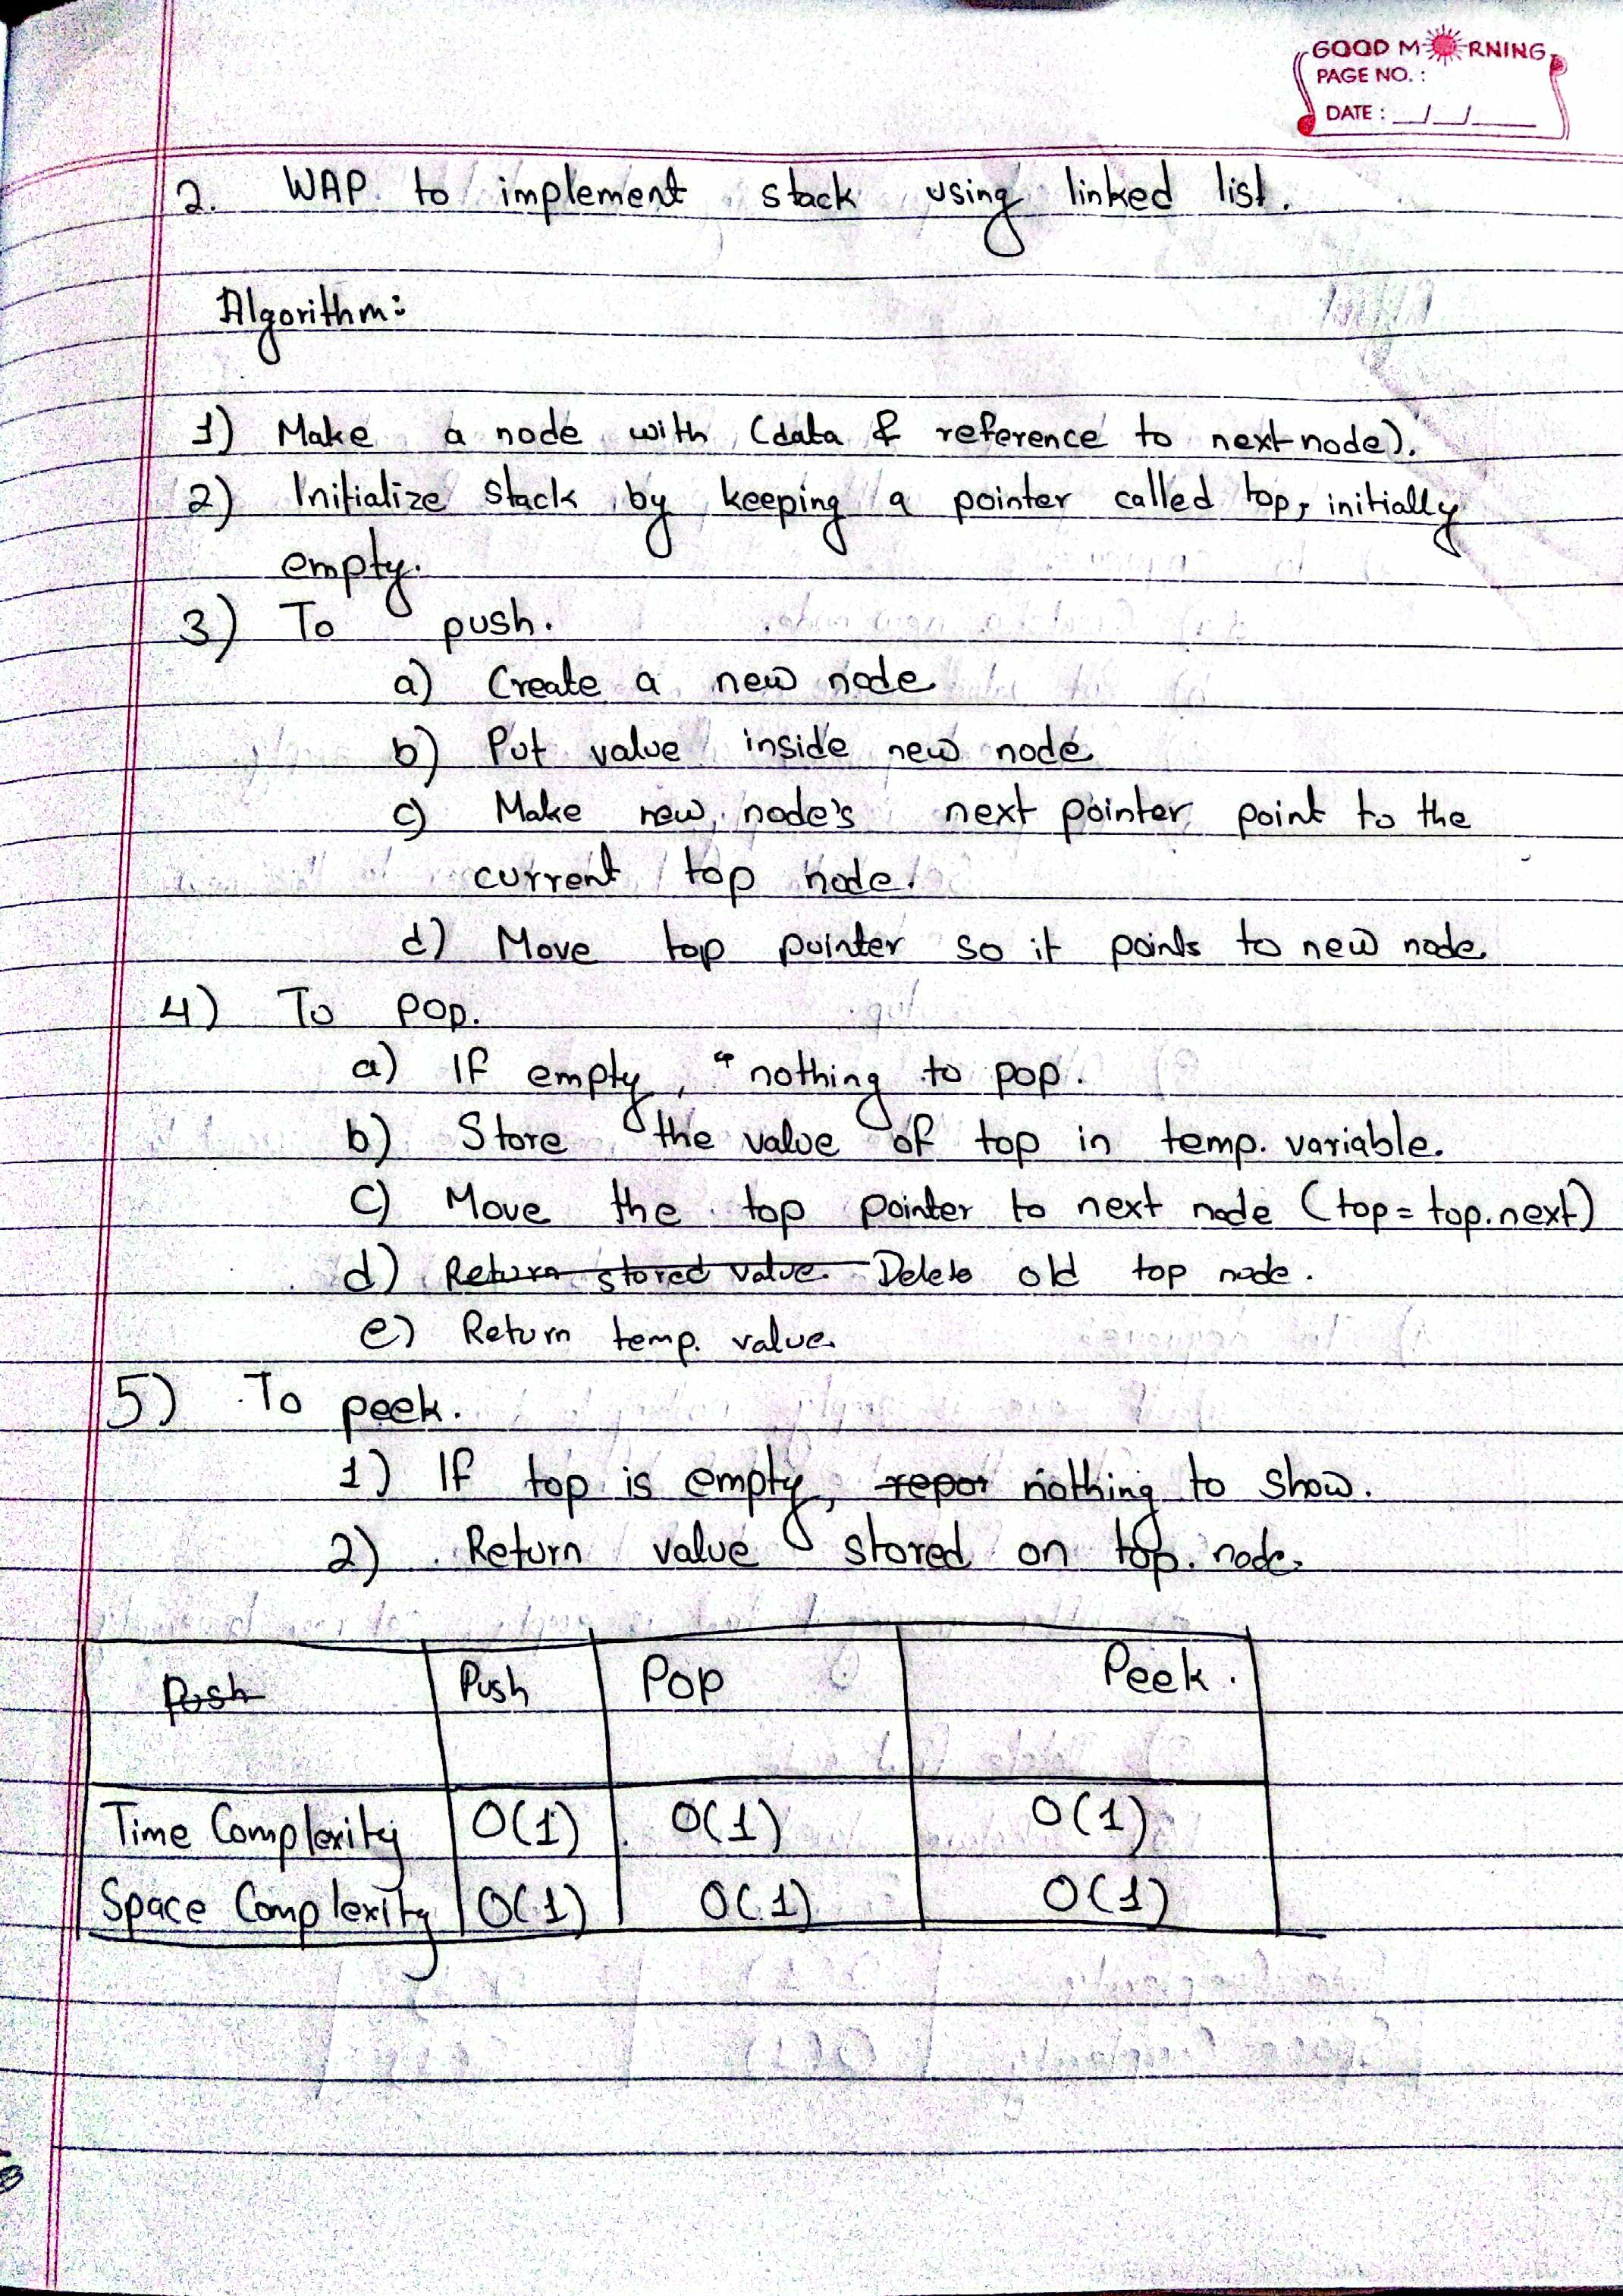 GOOD MORNING
PAGE NO. :
DATE : __/__/____
2. WAP to implement stack using linked list.
Algorithm:
1) Make a node with (data & reference to next node).
2) Initialize stack by keeping a pointer called top, initially
empty.
3) To push.
a) Create a new node
b) Put value inside new node
c) Make new node's next pointer point to the
current top node.
d) Move top pointer so it points to new node
4) To pop.
a) If empty, " nothing to pop.
b) Store the value of top in temp. variable.
c) Move the top pointer to next node (top = top.next)
d) Return stored value. Delete old top node.
e) Return temp. value.
5) To peek.
1) If top is empty, repor nothing to show.
2) Return value stored on top. node.
Push Push Pop Peek.
Time Complexity O(1) O(1) O(1)
Space Complexity O(1) O(1) O(1)